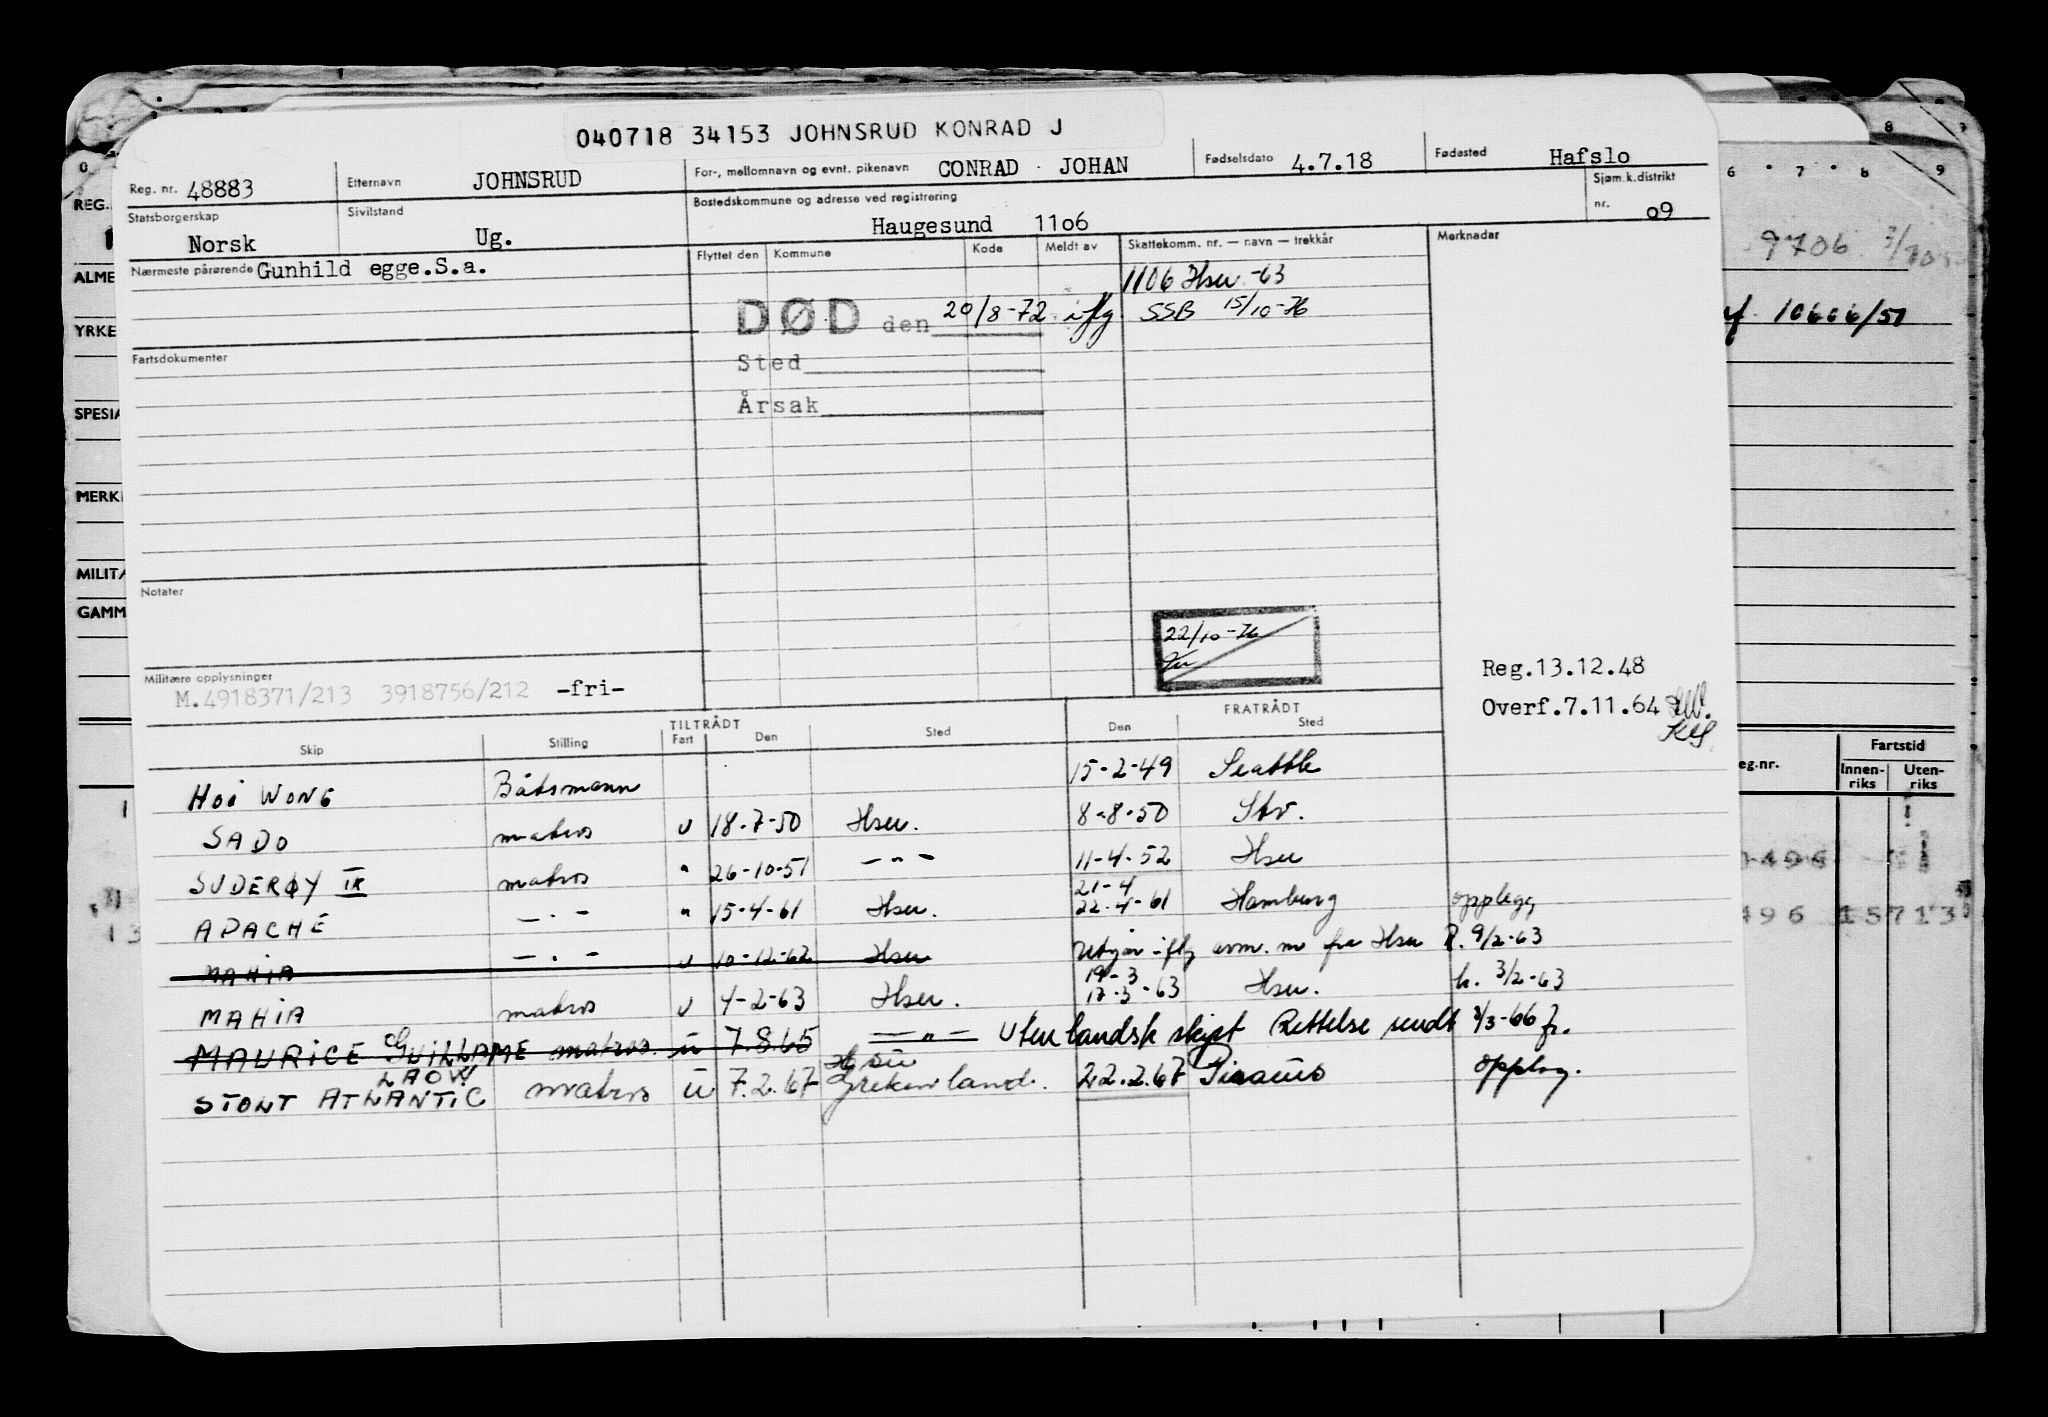 040718 34153 JOHNSRUD KONRAD J
Reg. nr. 48883 Etternavn JOHNSRUD For-, mellomnavn og evnt. pikenavn CONRAD JOHAN Fødselsdato 4.7.18 Fødested Hafslo
Statsborgerskap Norsk Sivilstand Ug. Bostedskommune og adresse ved registrering Haugesund 11o6 Sjøm.k.distrikt nr. o9
Nærmeste pårørende Gunhild egge.S.a. Flyttet den Kommune Kode Meldt av Skattekomm. nr. — navn — trekkår Merknadar
1106 Hsu -63
DØD den 20/8-72 iflg SSB 15/10-76
Fartsdokumenter
Sted
Årsak
Notater
22/10-76
Reg.13.12.48
Militære opplysninger
M.4918371/213 3918756/212 -fri-
Overf.7.11.64
TILTRÅDT FRATRÅDT
Skip Stilling Fart Den Sted Den Sted
HOI WONG Båtsmann 15-2-49 Seattle
SADO matros u 18-7-50 Hsu. 8-8-50 Stv.
SUDERØY IX matros " 26-10-51 — " — 11-4-52 Hsu
APACHE — " — " 15-4-61 Hsu. 21-4 22-4-61 Hamburg opplegg
MAHIA — " — u 10-12-62 Hsu Utgår iflg avm. m fra Hsu P. 9/2-63
MAHIA matros u 4-2-63 Hsu. 19-3 17-3-63 Hsu. h. 3/2-63
MAURICE GUILLAME matros u 7.8.65 — " — Utenlandsk skip Rettelse sendt 2/3-66 fr.
LAOW Hsu
STOLT ATLANTIC matros u 7.2.67 Grekenland. 22.2.67 Piraeus opplag.
0 REG.
ALME
YRKE
SPESIA
MERK
MILITÆ
GAMM
6 7 8 9
8
9706
10606/51
eg.nr. Fartstid
Innenriks Utenriks
496 15713